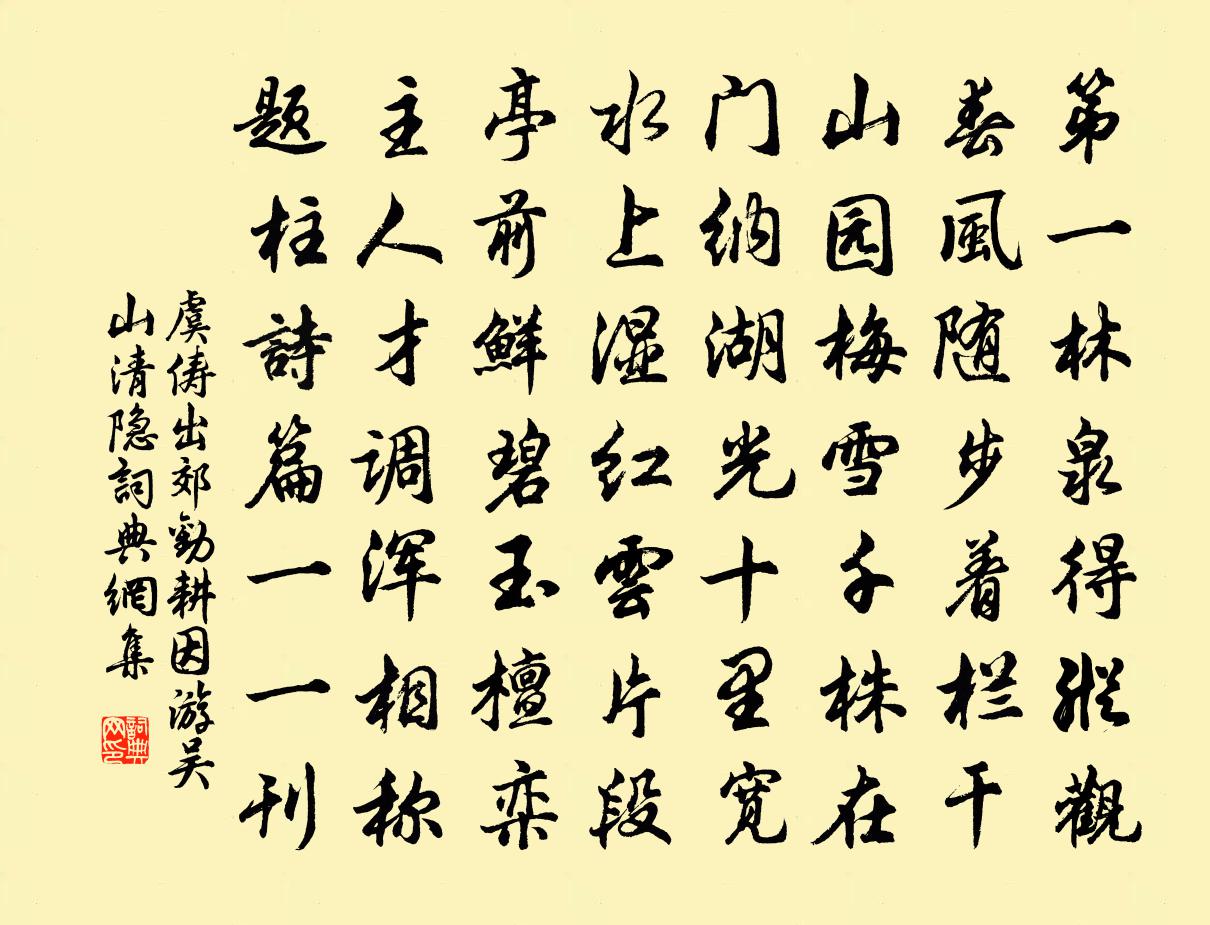 第一林泉得縱觀
春風随步着栏干
山园梅雪千株在
门纳湖光十里宽
水上湿红雲片段
亭前鮮碧玉檀栾
主人才调浑相称
题柱詩篇一一刊
虞俦出郊勸耕因游吴
山清隐詞典網集
詞典
网印